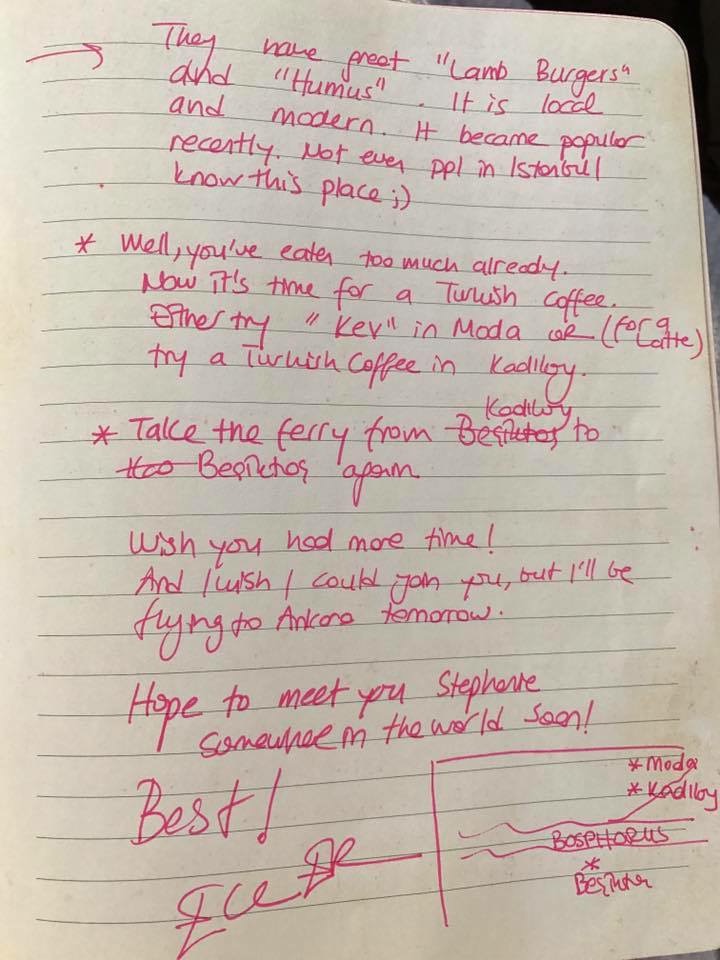 They have great "Lamb Burgers"
and "Humus". It is local
and modern. It became popular
recently. Not even ppl in Istanbul
know this place ;)
* Well, you've eaten too much already.
Now it's time for a Turkish coffee.
Either try "Kev" in Moda or (for a Latte)
try a Turkish Coffee in Kadıköy.
Kadıköy
* Take the ferry from Beşiktaş to
Beşiktaş again
Wish you had more time!
And I wish I could join you, but I'll be
flying to Ankara tomorrow.
Hope to meet you Stephanie
somewhere in the world soon!
Best!
* Moda
* Kadıköy
BOSPHORUS
*
Beşiktaş